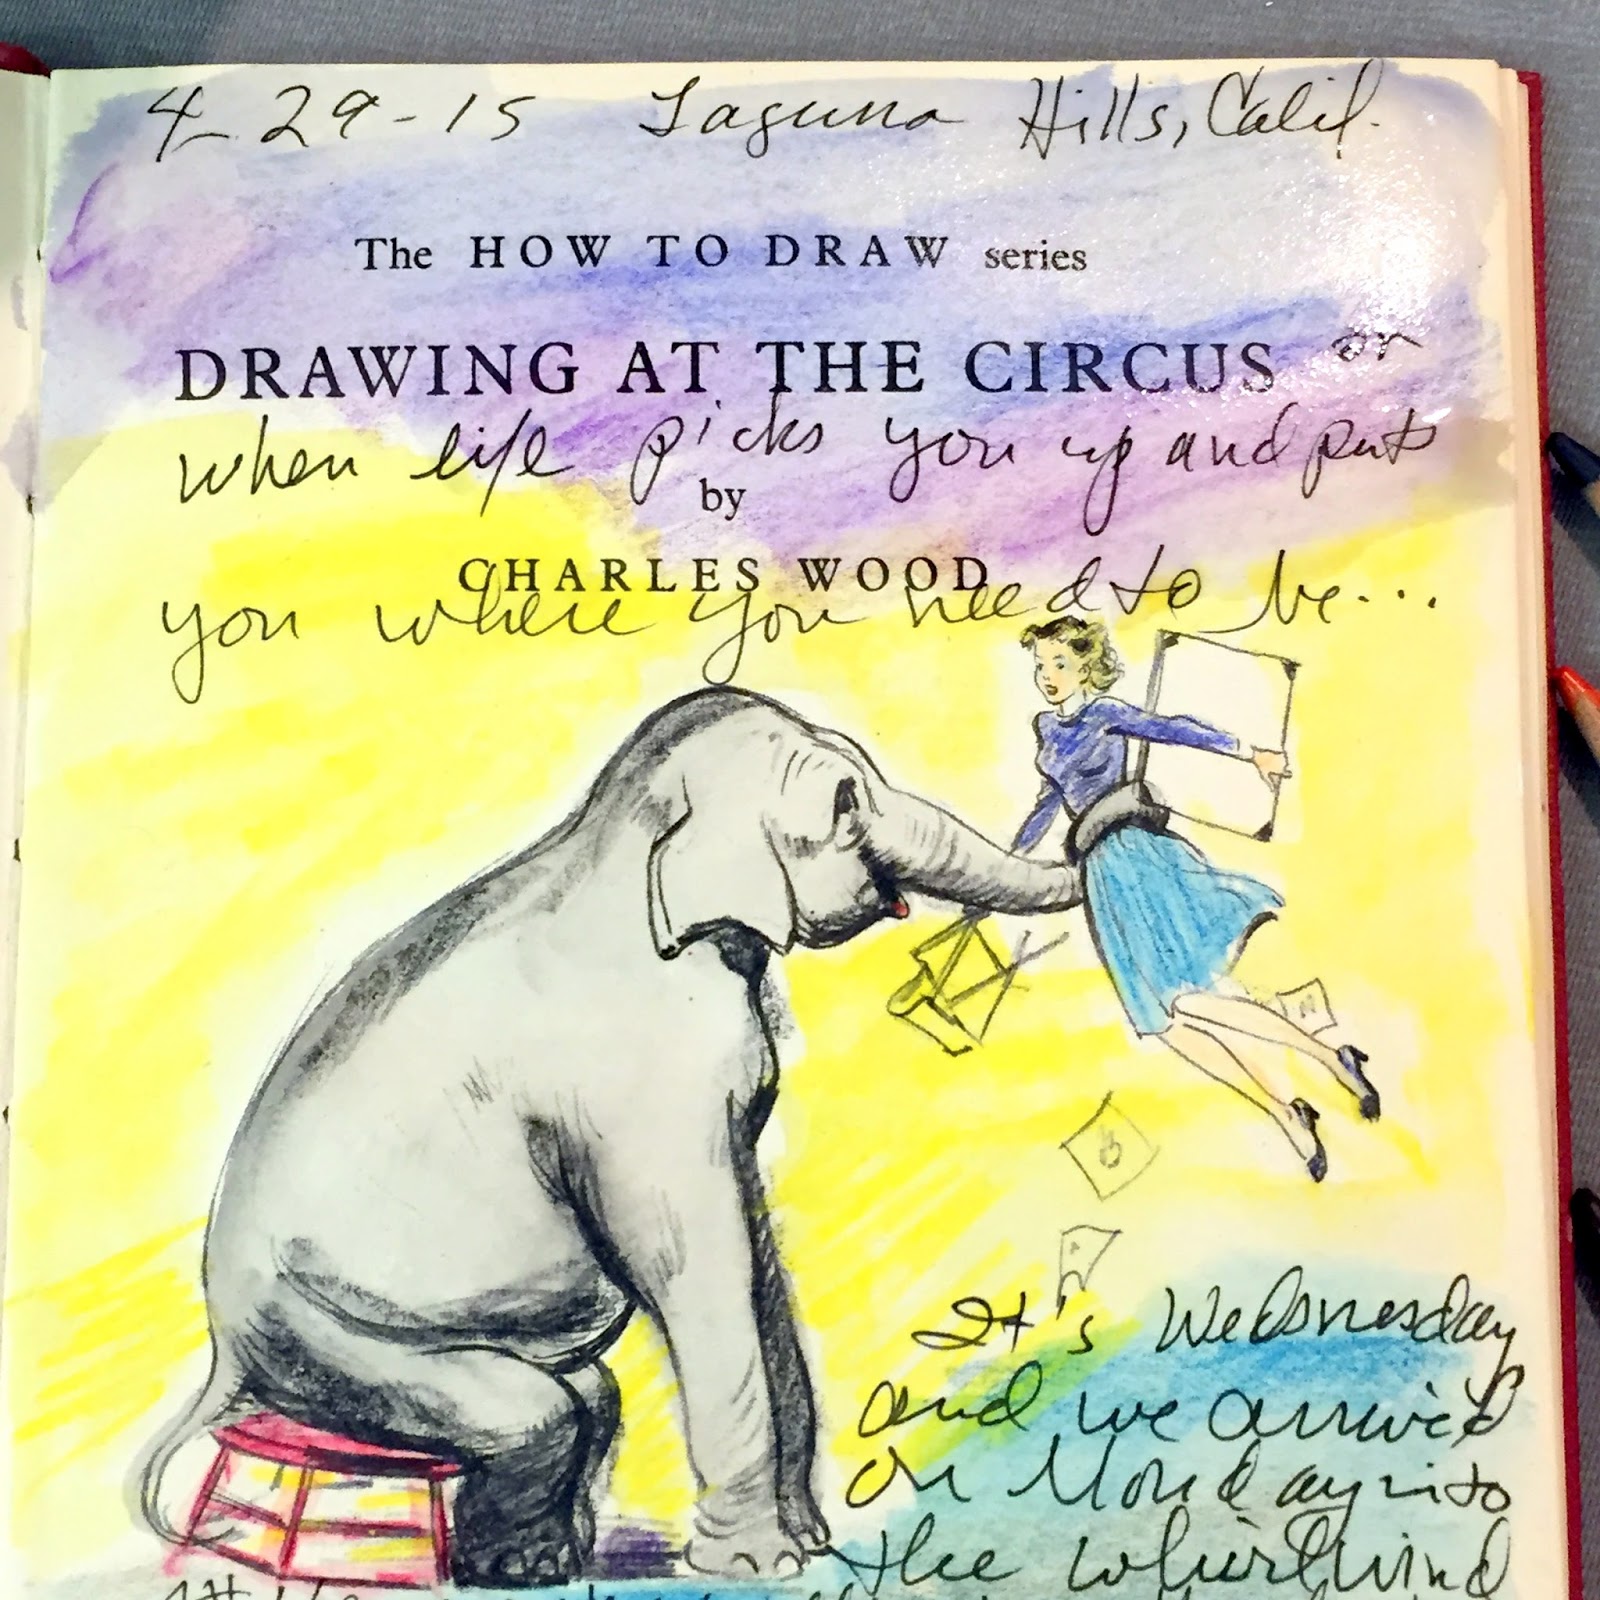 4-29-15 Laguna Hills, Calif.
The HOW TO DRAW series
DRAWING AT THE CIRCUS or
when life picks you up and puts
by
CHARLES WOOD
you where you need to be...
It's Wednesday
and we arrived
on Monday into
the whirlwind